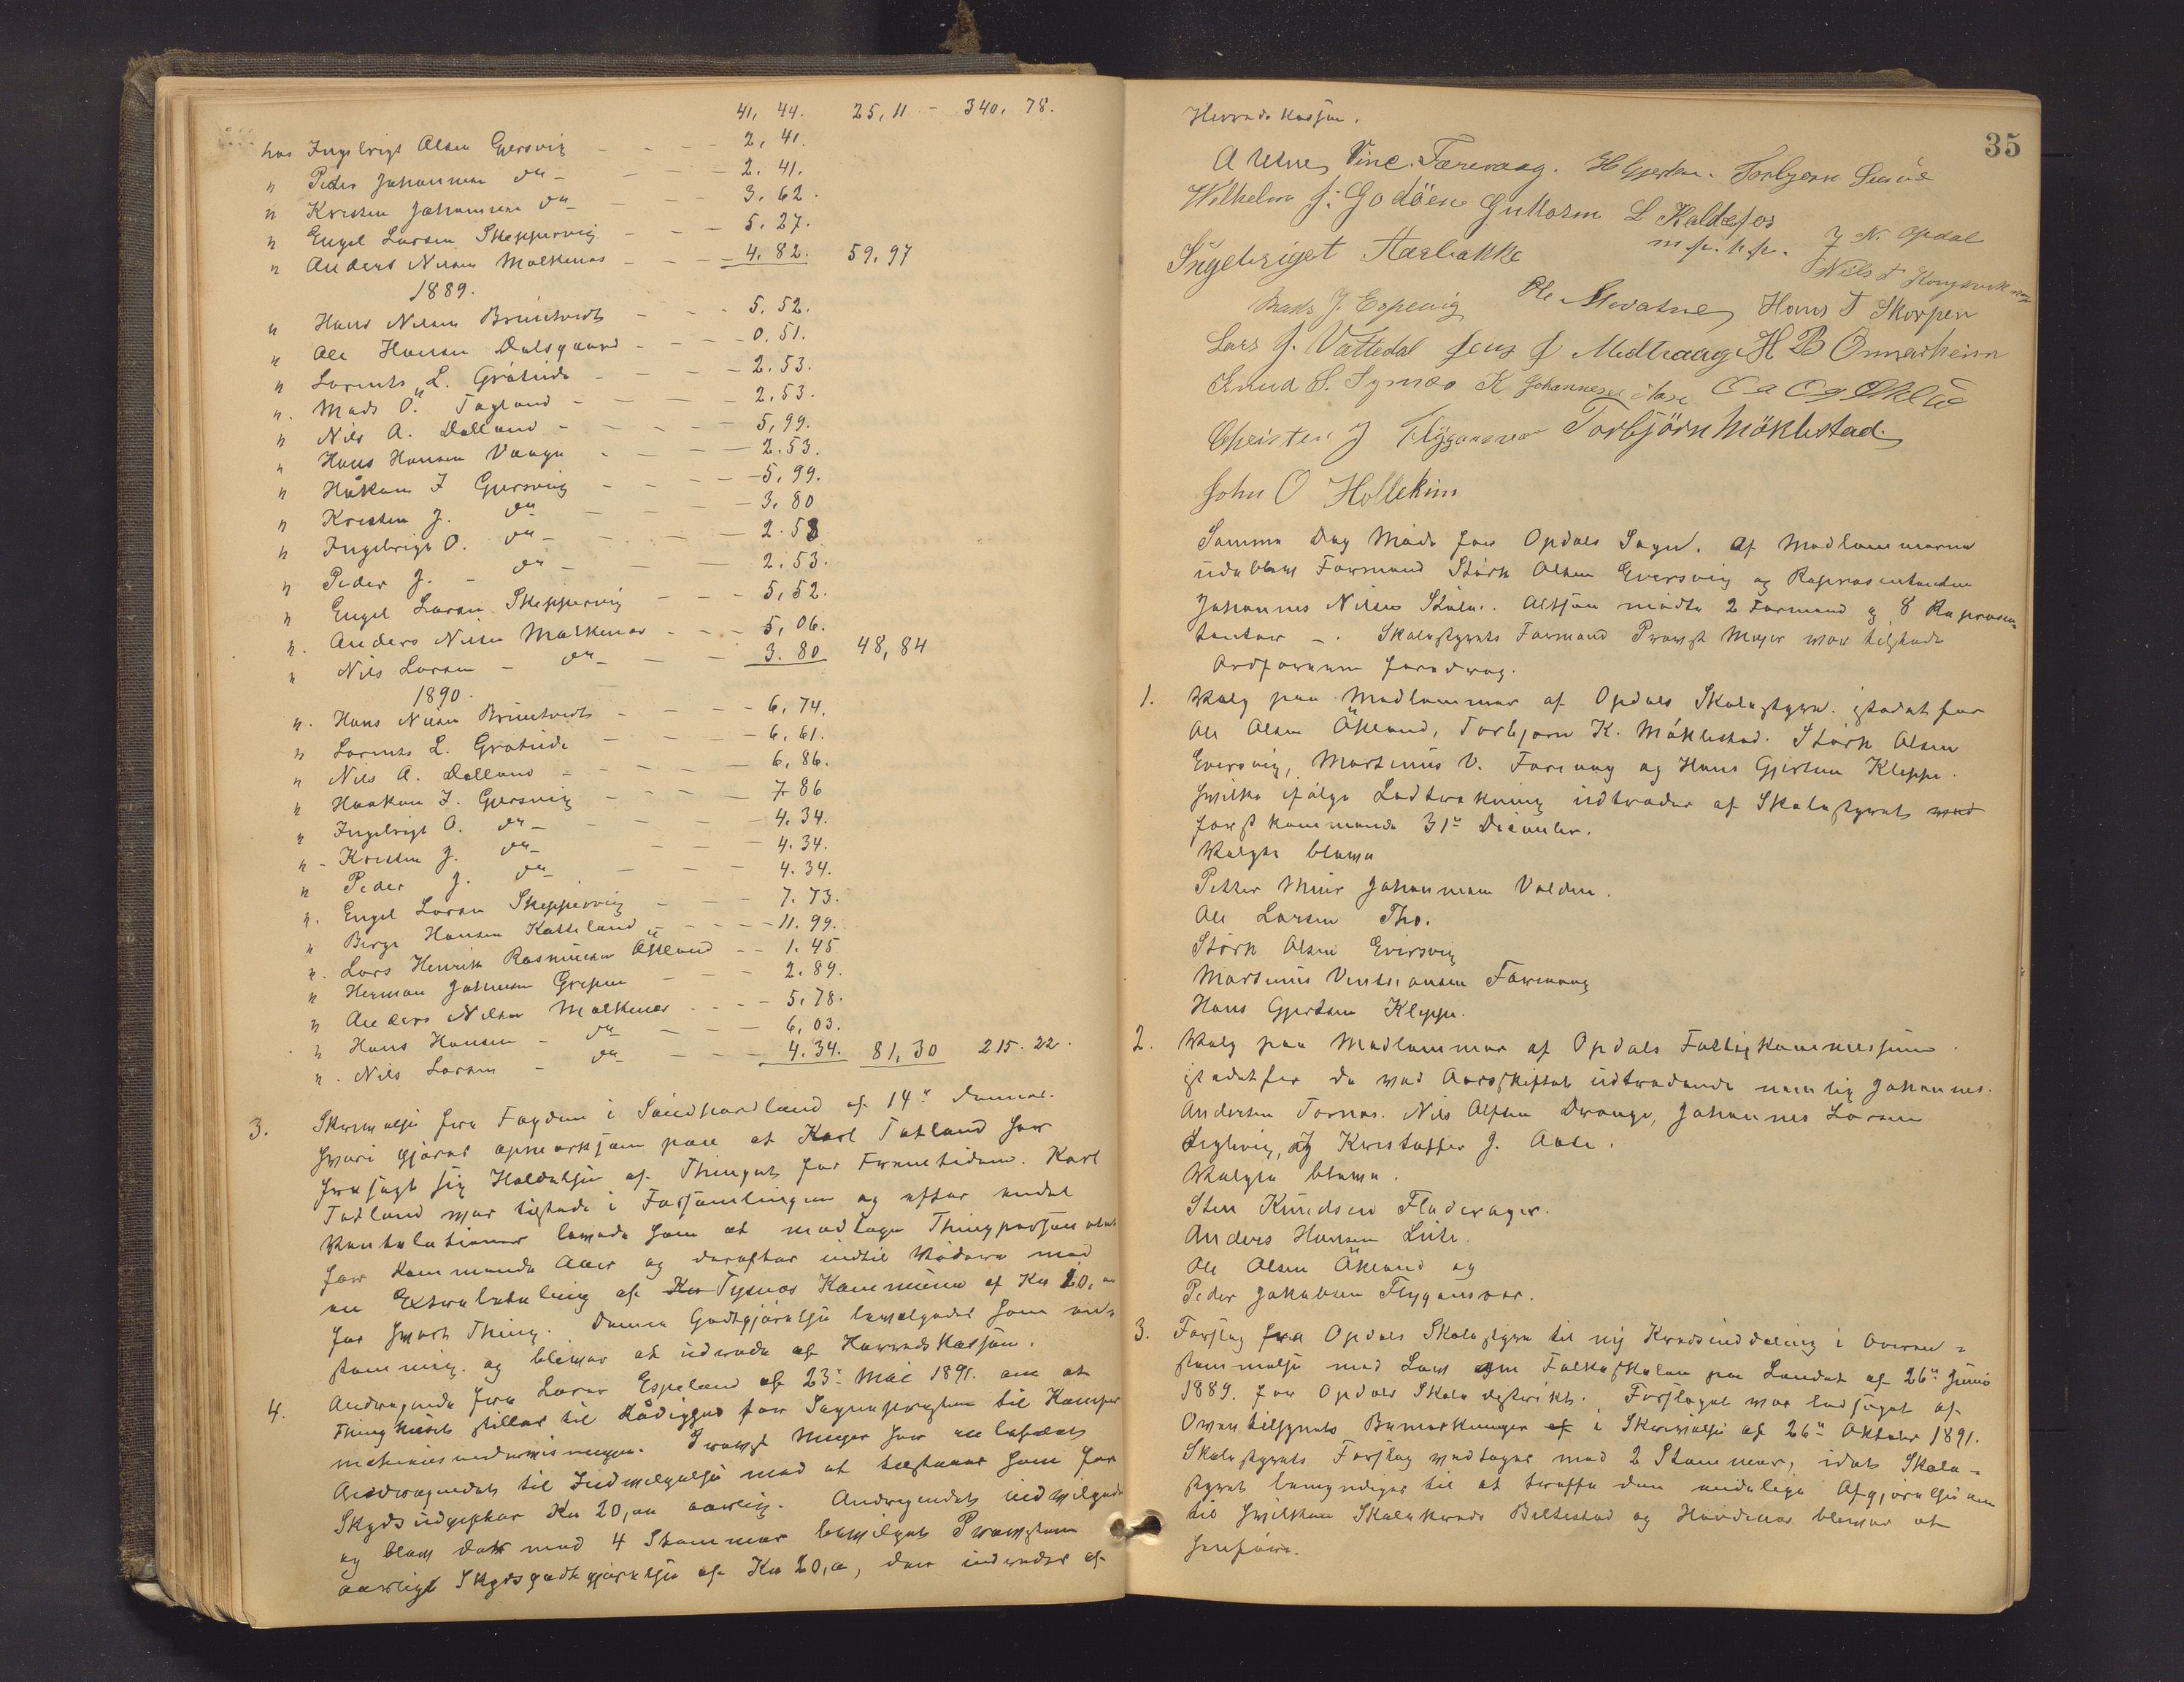 41, 44. 25, 11 - 340, 78.
hos Ingebrigt Olsen Gjersvig - - - 2, 41.
" Peder Johannesen do - - - 2. 41.
" Kristen Johannesen do - - - 3. 62.
" Engel Larsen Skeppervig - - - 5. 27.
" Anders Nilsen Malkenes - - - 4. 82. 59, 97
1889.
" Hans Nilsen Bruntvedt - - - 5. 52.
" Ole Hansen Dalsgaard - - - 0. 51.
" Lorents L. Grøtnde - - - 2. 53.
". Mads O. Tagland - - - 2. 53.
" Nils A. Dalland - - - 5, 99.
" Hans Hansen Vaage - - - 2. 53.
" Håkon J Gjersvig - - - 5, 99.
" Kristen J. do - - - 3, 80
" Ingebrigt O. do - - - 2. 53
" Peder J. - do - - - 2. 53.
" Engel Larsen Skeppervig - - - 5, 52.
". Anders Nilsen Malkenes - - - 5, 06.
" Nils Larsen - do - - - 3. 80 48, 84
1890.
". Hans Nilsen Bruntvedt - - - 6, 74.
" Lorents L. Grøtnde - - - 6, 61.
" Nils A. Dalland - - - 6, 86.
" Haakon J. Gjersvig - - - 7 86
" Ingebrigt O. do - - - 4. 34.
" - Kristen J. do - - - 4. 34.
" Peder J. do - - - 4. 34.
". Engel Larsen Skeppervig - - - 7. 73.
" Berge Hansen Katteland - - - 11. 99.
". Lars Henrik Rasmussen Økland - - 1. 45
" Herman Johnsen Gripne - - - 2. 89.
" Anders Nilsen Malkenes - - - 5, 78.
" Hans Hansen - do - - - 6, 03.
". Nils Larsen - do - - - 4. 34. 81, 30 215. 22.
3. Skrivelse fra Fogden i Søndhordland af 14de dennes.
hvori gjøres opmærksom paa at Karl Tatland har
frasagt sig Holdelse af Thinget for Fremtiden. Karl
Tatland var tilstede i Forsamlingen og efter endel
Ventilationer lovede han at modtage Thingpersonalet
for kommende Aar og derefter indtil Videre mod
en Extrabetaling af Kr Tysnæs Kommune af Kr 10,00
for hvert Thing. Denne Godtgjørelse bevilgedes
stemmig og bliver at udrede af Herredskassen.
4. Andragende fra Lærer Espeland af 23de Mai 1891. om at
Thinghuset stilles til Rådighed for Sognepresten til
Provst Meyer har anbefalet
Andragendet til Indvilgelse med at tilstaaes ham for
Skydsudgifter Kr 20,00 aarlig. Andragendet indvilgedes
og blev dets med 4 Stemmer bevilget Provsten
aarligt Skydsgodtgjørelse af Kr 20,00, der udredes af
35
Herredskassen.
A Uelnes Vinc. Færevaag. H Gjertsen. Torbjørn
Wilhelm J. Godöen Guttorm L Kaldefos
m. p. p. J N. Opdal
Ingebriget Hærbakke Nils T Kongsvik
Mads J. Espevig Ole Mevatne Hans T Skorpen
Lars J. Vattedal Jens J Midtvaage H B Onnarheim
Knud S. Tysnæs K Johannesen Aase O O Økland
Christen J Flygansvær Torbjörn Möklestad.
John O Hollekim
Samme Dag Møde for Opdals Sogn. Af Medlemmerne
udeblev Formand Størk Olsen Eversvig og Repræsentanten
Johannes Nilsen Stølen. Altsaa mødte 2 Formænd og 8 Repræsen-
tanter -. Skolestyrets Formand Provst Meyer var tilstede
Ordføreren foredrog.
1. Valg paa Medlemmer af Opdals Skolestyre. istedetfor
Ole Olsen Økland, Torbjørn K. Møklestad. Størk Olsen
Eversvig, Martinus V. Færevaag og Hans Gjertsen Kleppe.
hvilke ifølge Lodtrækning udtræder af Skolestyret ved
førstkommende 31te December.
Valgte bleve
Petter Muir Johannesen Valden.
Ole Larsen Tho.
Størk Olsen Eversvig
Martinus Ventseansen Færevaag
Hans Gjertsen Kleppe.
2. Valg paa Medlemmer af Opdals Fattigkommission.
istedetfor de ved Aarsskiftet udtrædende nemlig Johannes.
Andersen Tornæs. Nils Olsen Drange, Johannes Larsen
Teglevig, og Kristoffer J. Aase.
Valgte bleve.
Sten Knudsen Fladerager.
Anders Hansen Lute.
Ole Olsen Økland og
Peder Jakobsen Flygansvær.
3. Forslag fra Opdals Skolestyre til ny Kredsinddeling i Overens-
stemmelse med Lov om Folkeskolen paa Landet af 26de Juni
1889. for Opdals Skoledistrikt. Forslaget var ledsaget af
Overtilsynets Bemærkninger af i Skrivelse af 26de Oktober 1891.
Skolestyrets Forslag vedtages med 2 Stemmer, idet Skole-
styret bemyndiges til at træffe den endelige Afgjørelse om
til hvilken Skolekreds Beltestad og Høvdenes bliver at
henføre.